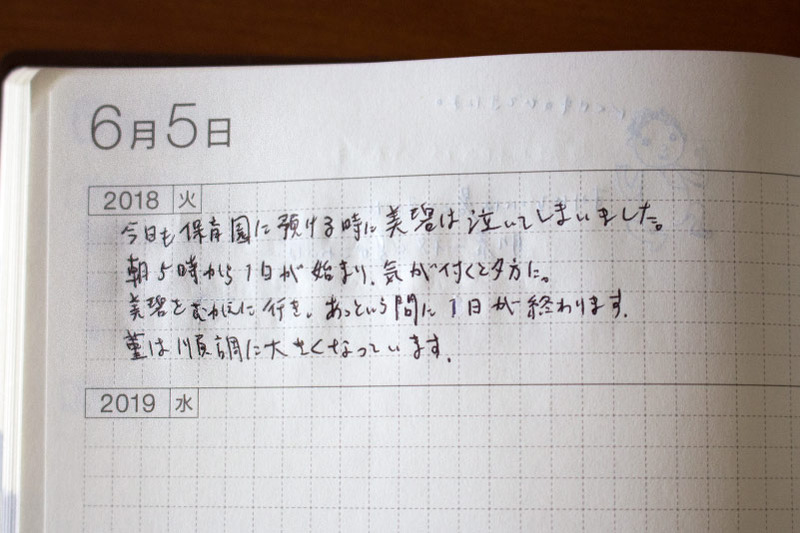 6月5日
2018 火
今日も保育園に預ける時に美碧は泣いてしまいました。
朝5時から1日が始まり、気が付くと夕方に。
美碧をおむかえに行き、あっという間に1日が終わります。
菫は順調に大きくなっています。
2019 水